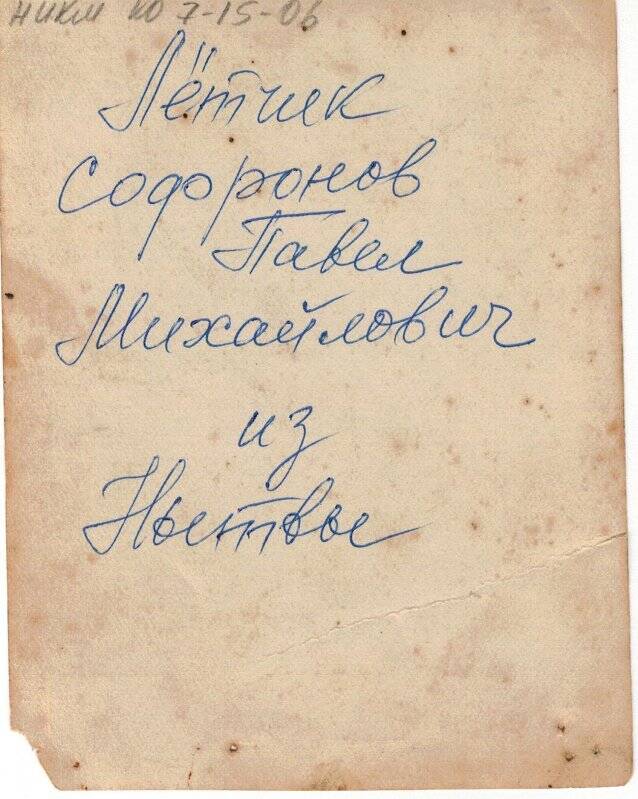 НИКМ КО 7-15-06
Лётчик
Софоронов
Павел
Михайлович
из
Нытвы